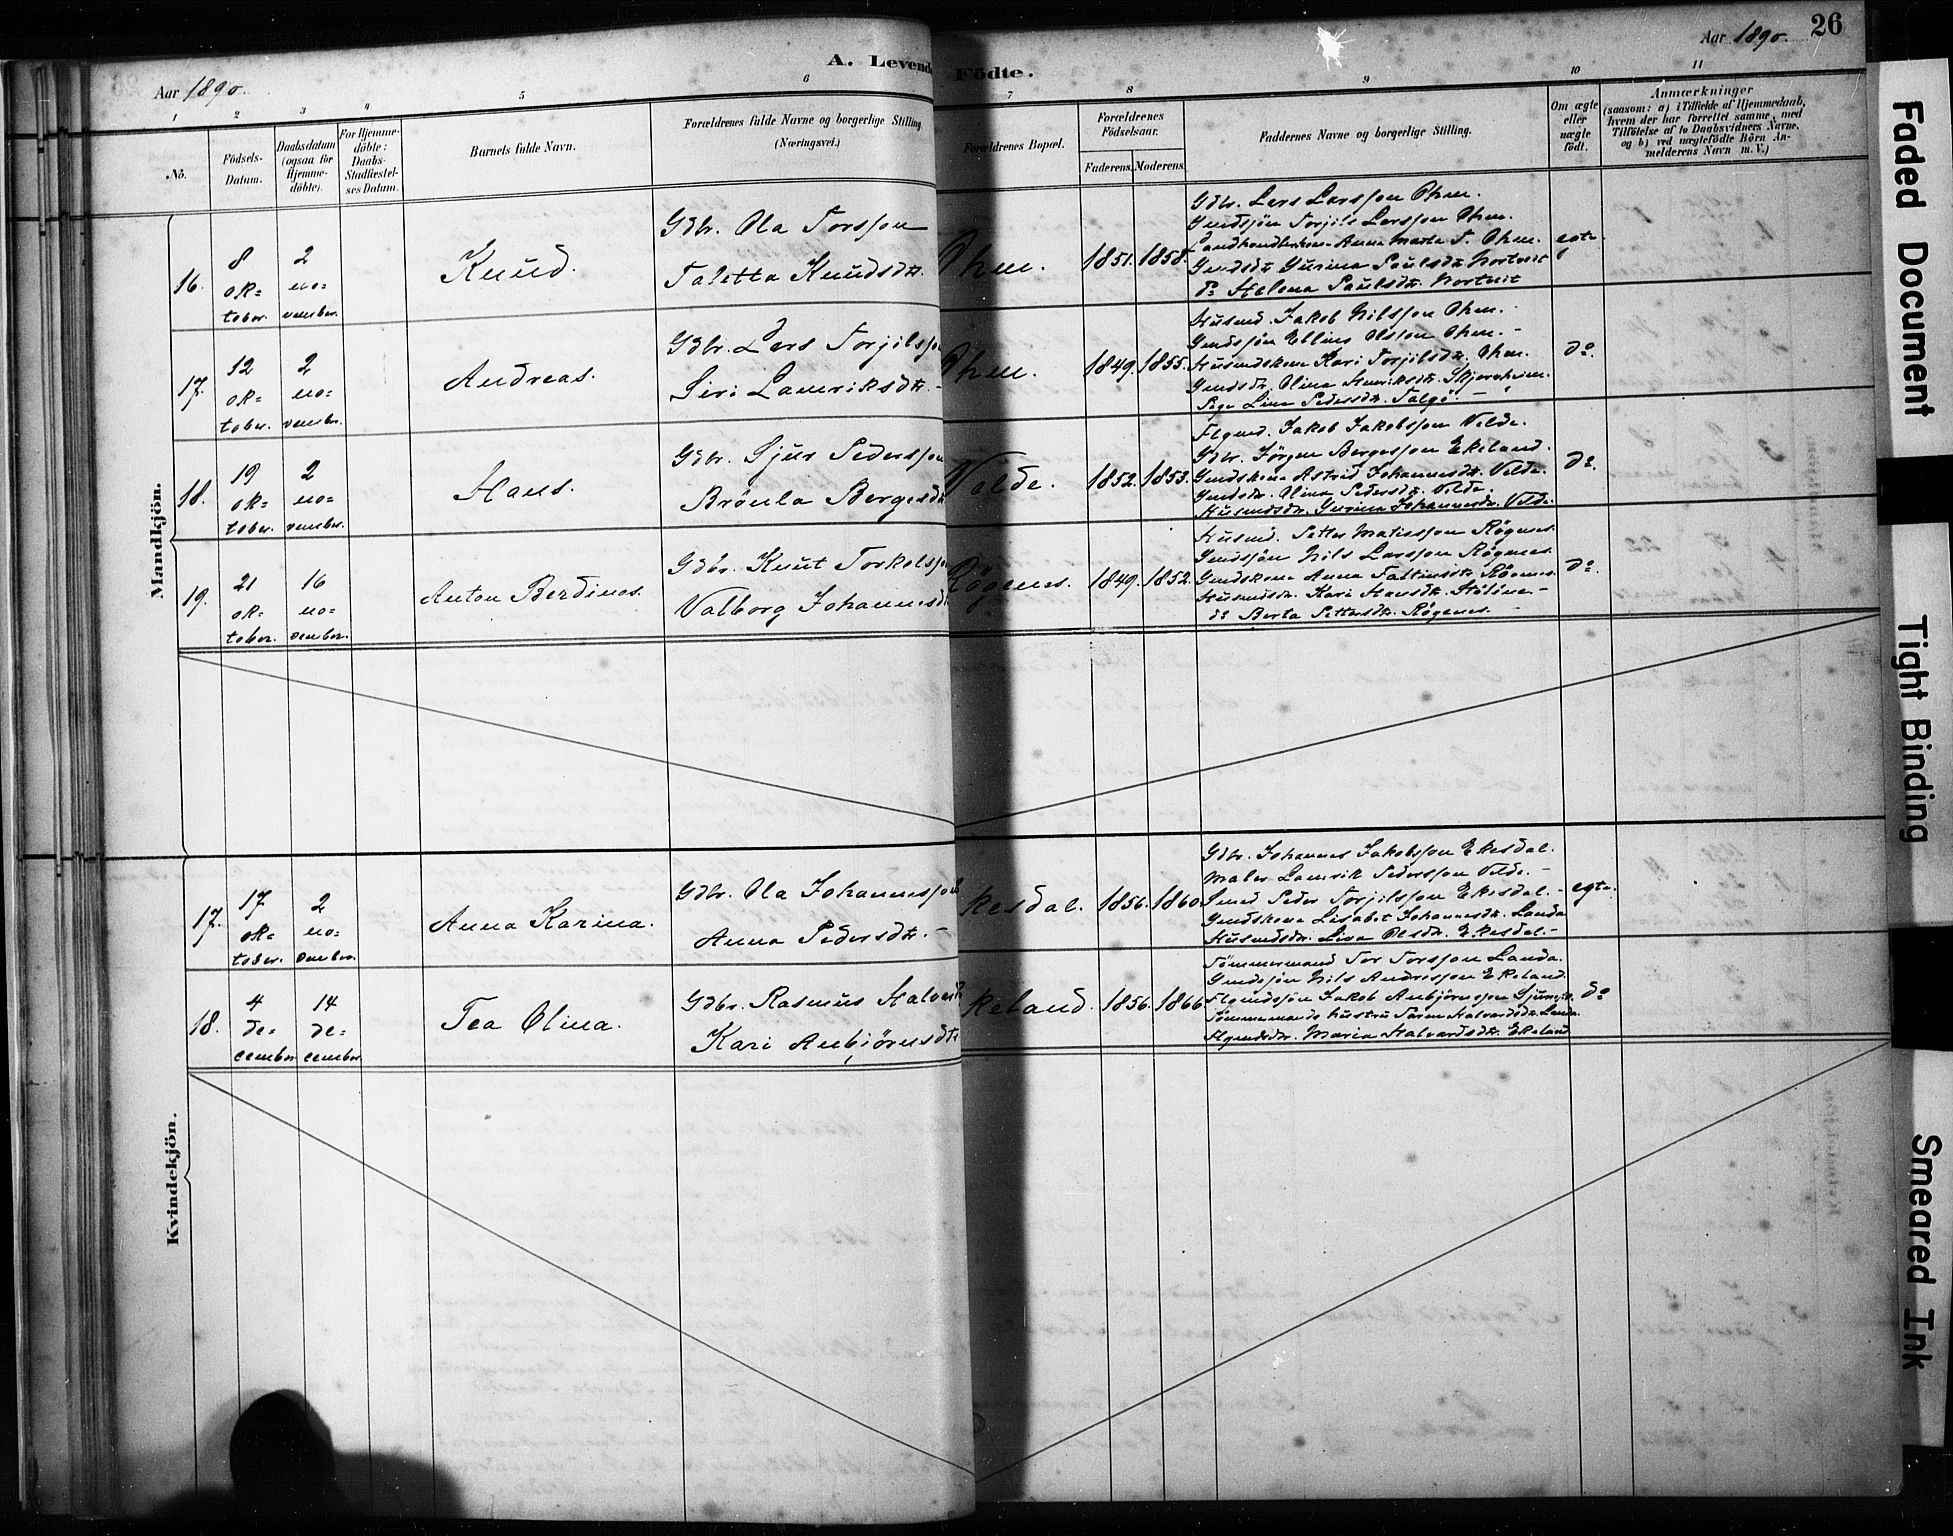 Aar 1890.
A. Levende Födte.
Aar 1890. 26
1 2 3 4 5 6 7 8 9 10 11
No.
Födsels-
Datum.
Daabsdatum
(ogsaa for
Hjemme-
döbte).
For Hjemme-
döbte:
Daabs-
Stadfæstel-
ses Datum.
Barnets fulde Navn.
Forældrenes fulde Navne og borgerlige Stilling
(Næringsvei.)
Forældrenes Bopæl.
Forældrenes
Födselsaar.
Faderens. Moderens.
Faddernes Navne og borgerlige Stilling.
Om ægte
eller
uægte
födt.
Anmærkninger
(saasom: a) i Tilfælde af Hjemmedaab,
hvem der har forrettet samme, med
Tilföielse af to Daabsvidners Navne.
og b) ved uægtefödte Börn An-
melderens Navn m. V.)
Mandkjön.
16.
8
ok=
tober.
2
no=
vember.
Knud.
Gdbr. Ola Torsson
Taletta Knudsdtr.
1851. 1858.
Gdbr. Lars Larsson Ohm.
Gmdssön Torjils Larsson Ohm.
Landhandlerkone Anna Marta T. Ohm.
Gmdsdtr Gurina Paulsdtr. Nortveit
do Helena Paulsdtr. Nortveit
egte
17.
12
ok=
tober.
2
no=
vember.
Andreas.
Gdbr. Lars Torjilsson
Siri Lauriksdtr.
1849. 1855.
Husmd. Jakob Nilsson Ohm.
Gmdssön Elling Olsson Ohm.
Husmdskone Kari Torjilsdtr. Ohm.
Gmdsdtr. Olina Henriksdtr. Skjersheim.
Pige Lina Pedersdtr. Talgö.
do.
18.
19
ok=
tober.
2
no=
vember.
Hans.
Gdbr. Sjur Pedersson
Brönla Bergesdtr
Velde.
1852. 1853.
Flgmd. Jakob Jakobsson Velde.
Gdbr. Jörgen Bergesson Ekeland.
Gmdskone Astrid Johannesdtr. Velde.
Gmdsdtr. Olina Pedersdtr. Velde.
Husmdsdtr. Gurina Johannesdtr. Velde.
do.
19.
21
ok=
tober.
16
no=
vember.
Anton Berdines.
Gdbr. Knut Torkelsson
Valborg Johannesdtr
Røgenes.
1849. 1852.
Husmd. Petter Matiesson Røgenes.
Gmdssön Nils Larsson Røgenes.
Gmdskone Anna Røgenes.
Husmdsdtr. Kari Hansdtr.
do Berta Pettersdtr. Røgenes.
do.
Kvindekjön.
17.
17
ok=
tober.
2
no=
vember.
Anna Karina.
Gdbr. Ola Johannesson
Anna Pedersdtr.
Ekesdal.
1856. 1860.
Gdbr. Johannes Jakobsson Ekesdal.
Maler Laurik Pedersson Velde.
Smed Peder Torjilsson Ekesdal.
Gmdskone Lisabet Johannesdtr. Landa
Husmdsdtr. Lina Olsdtr. Ekesdal.
egte.
18.
4
de=
cember
14
de=
cember.
Tea Olina.
Gdbr. Rasmus Halvards
Kari Anbjörnsdtr
Ekeland.
1856. 1866
Tömmermand Tor Torsson Landa.
Gmdssön Nils Andrisson Ekeland.
Flgmdssön Jakob Anbjörnsson
Tömmermands hustru Halvardsdtr. Landa.
Flgmdsdtr. Maria Halvardsdtr. Ekeland
do
Faded Document
Tight Binding
Smeared Ink